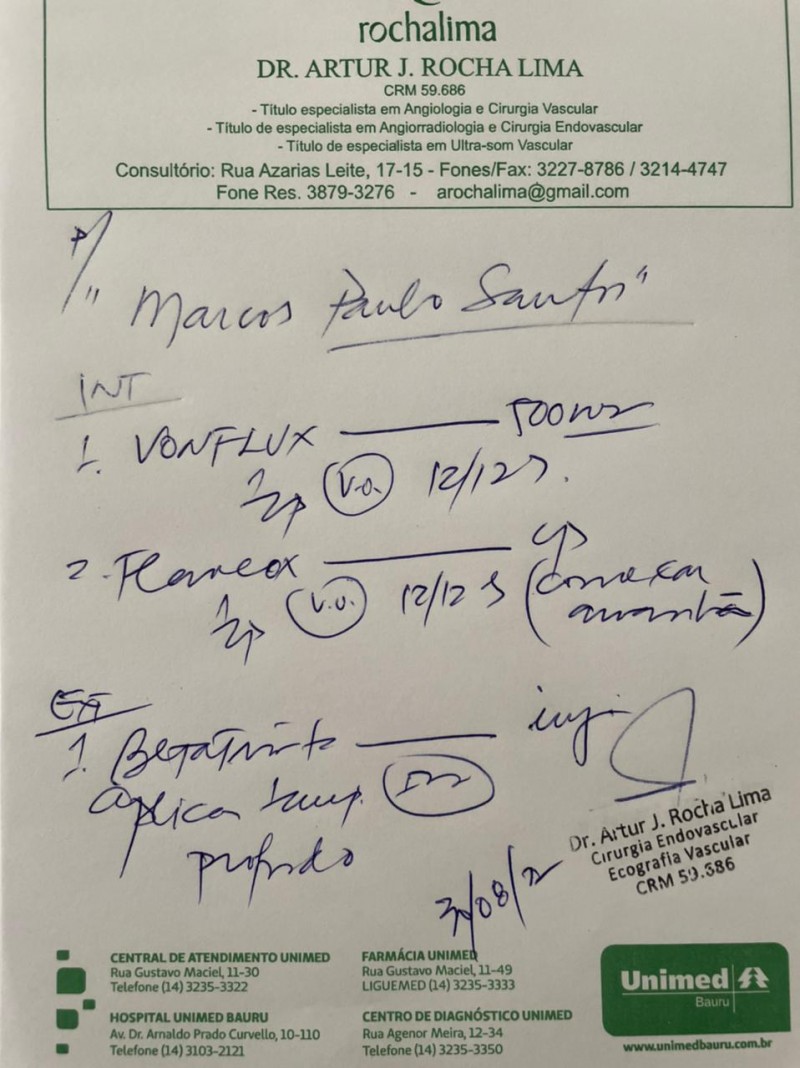 rochalima
DR. ARTUR J. ROCHA LIMA
CRM 59.686
- Título especialista em Angiologia e Cirurgia Vascular
- Título de especialista em Angiorradiologia e Cirurgia Endovascular
- Título de especialista em Ultra-som Vascular
Consultório: Rua Azarias Leite, 17-15 - Fones/Fax: 3227-8786 / 3214-4747
Fone Res. 3879-3276 - arochalima@gmail.com
p/
" Marcos Paulo Santos "
INT
1. VONFLUX 500
V.O. 12/12
2. Flancox
V.O. 12/12 (começar
amanhã)
EXT
1. Betatrinta inj.
Aplicar 1 amp. IM
profundo
Dr. Artur J. Rocha Lima
Cirurgia Endovascular
Ecografia Vascular
CRM 59.686
CENTRAL DE ATENDIMENTO UNIMED
Rua Gustavo Maciel, 11-30
Telefone (14) 3235-3322
FARMÁCIA UNIMED
Rua Gustavo Maciel, 11-49
LIGUEMED (14) 3235-3333
HOSPITAL UNIMED BAURU
Av. Dr. Arnaldo Prado Curvello, 10-110
Telefone (14) 3103-2121
CENTRO DE DIAGNÓSTICO UNIMED
Rua Agenor Meira, 12-34
Telefone (14) 3235-3350
Unimed
Bauru
www.unimedbauru.com.br